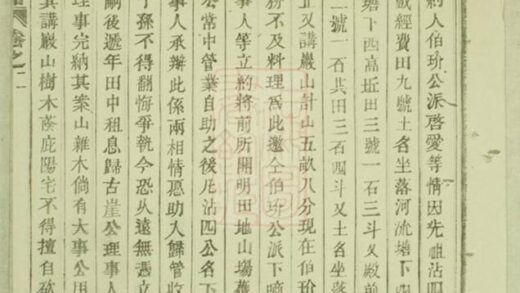 約人伯玠公派啓愛等情因先祖沾四
戤經費田九號土名坐落河流塘下四
塘下四高坵田三號一石三斗又殿前
二號一石共田三石四斗又土名坐落
止又講巖山計山五畝八分現在伯玠
務不及料理爲此邀仝伯玠公派下
事人等立約將前所開明田地山塲
公常中管業自助之後凢沾四公名下
事人承辦此係兩相情愿助入歸管收
子孫不得翻悔爭執今恐久遠無憑立
嗣後遞年田中租息歸古崖公理事人
理事完納其案山雜木倘有大事公用
其講巖山樹木蔭庇陽宅不得擅自砍
卷之二